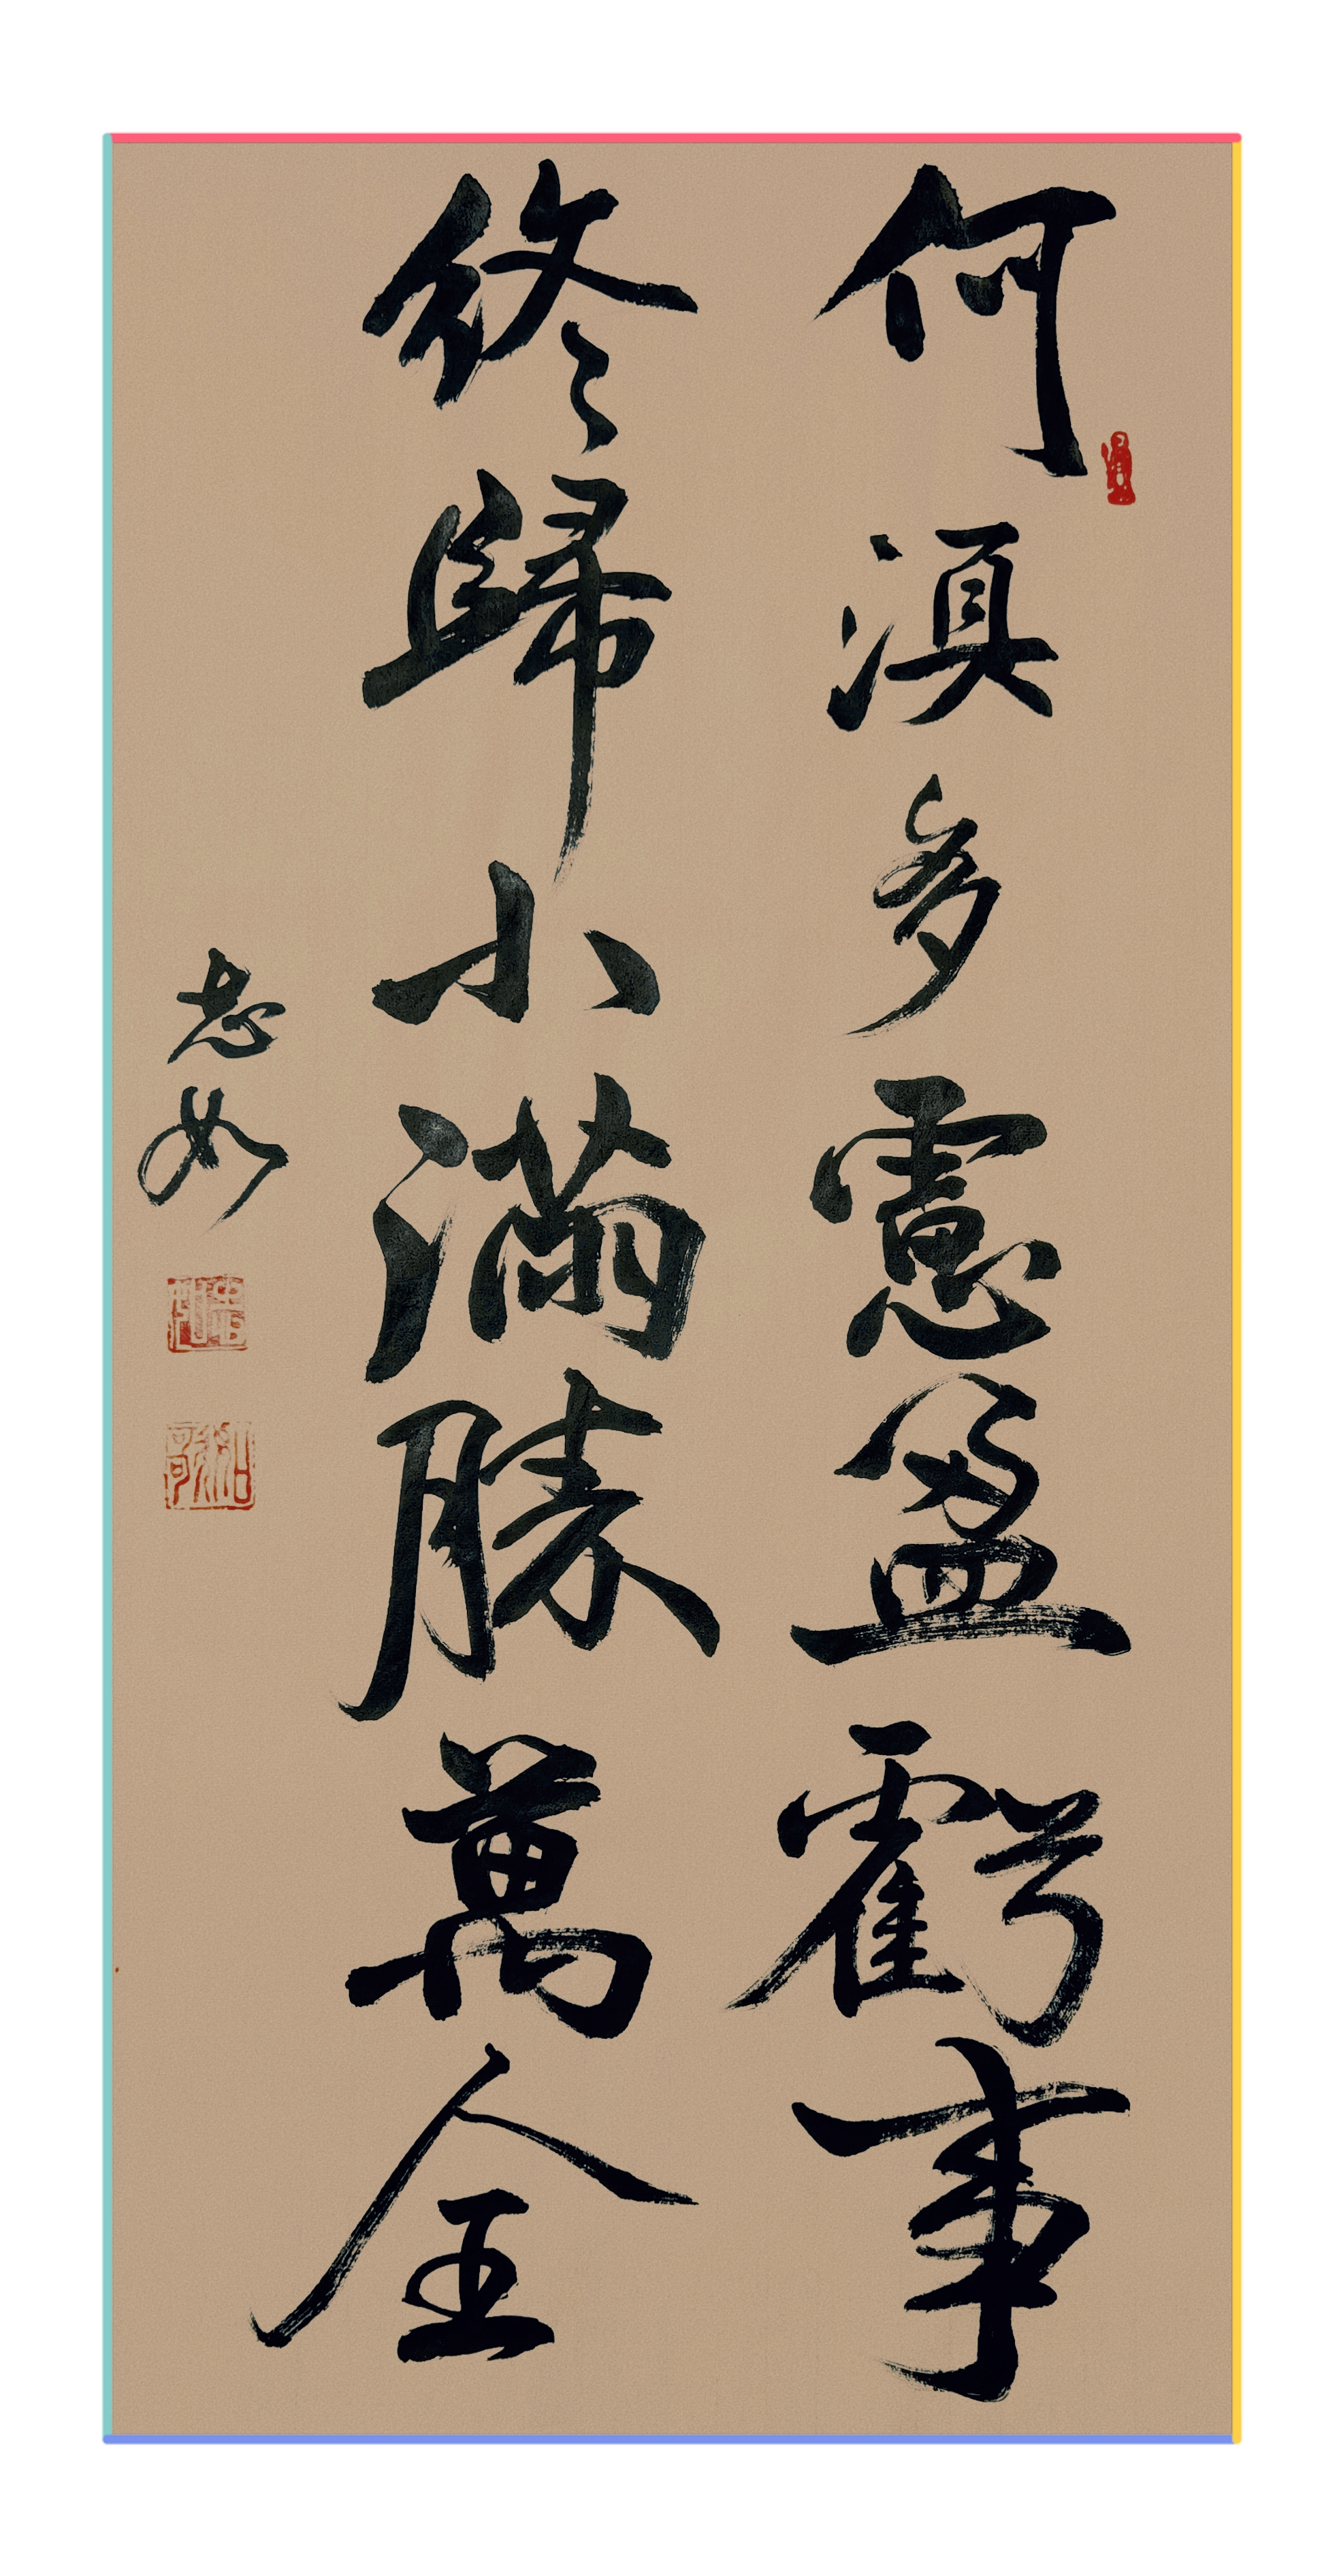 何湏多慮盈虧事
終歸小滿勝萬全
志如